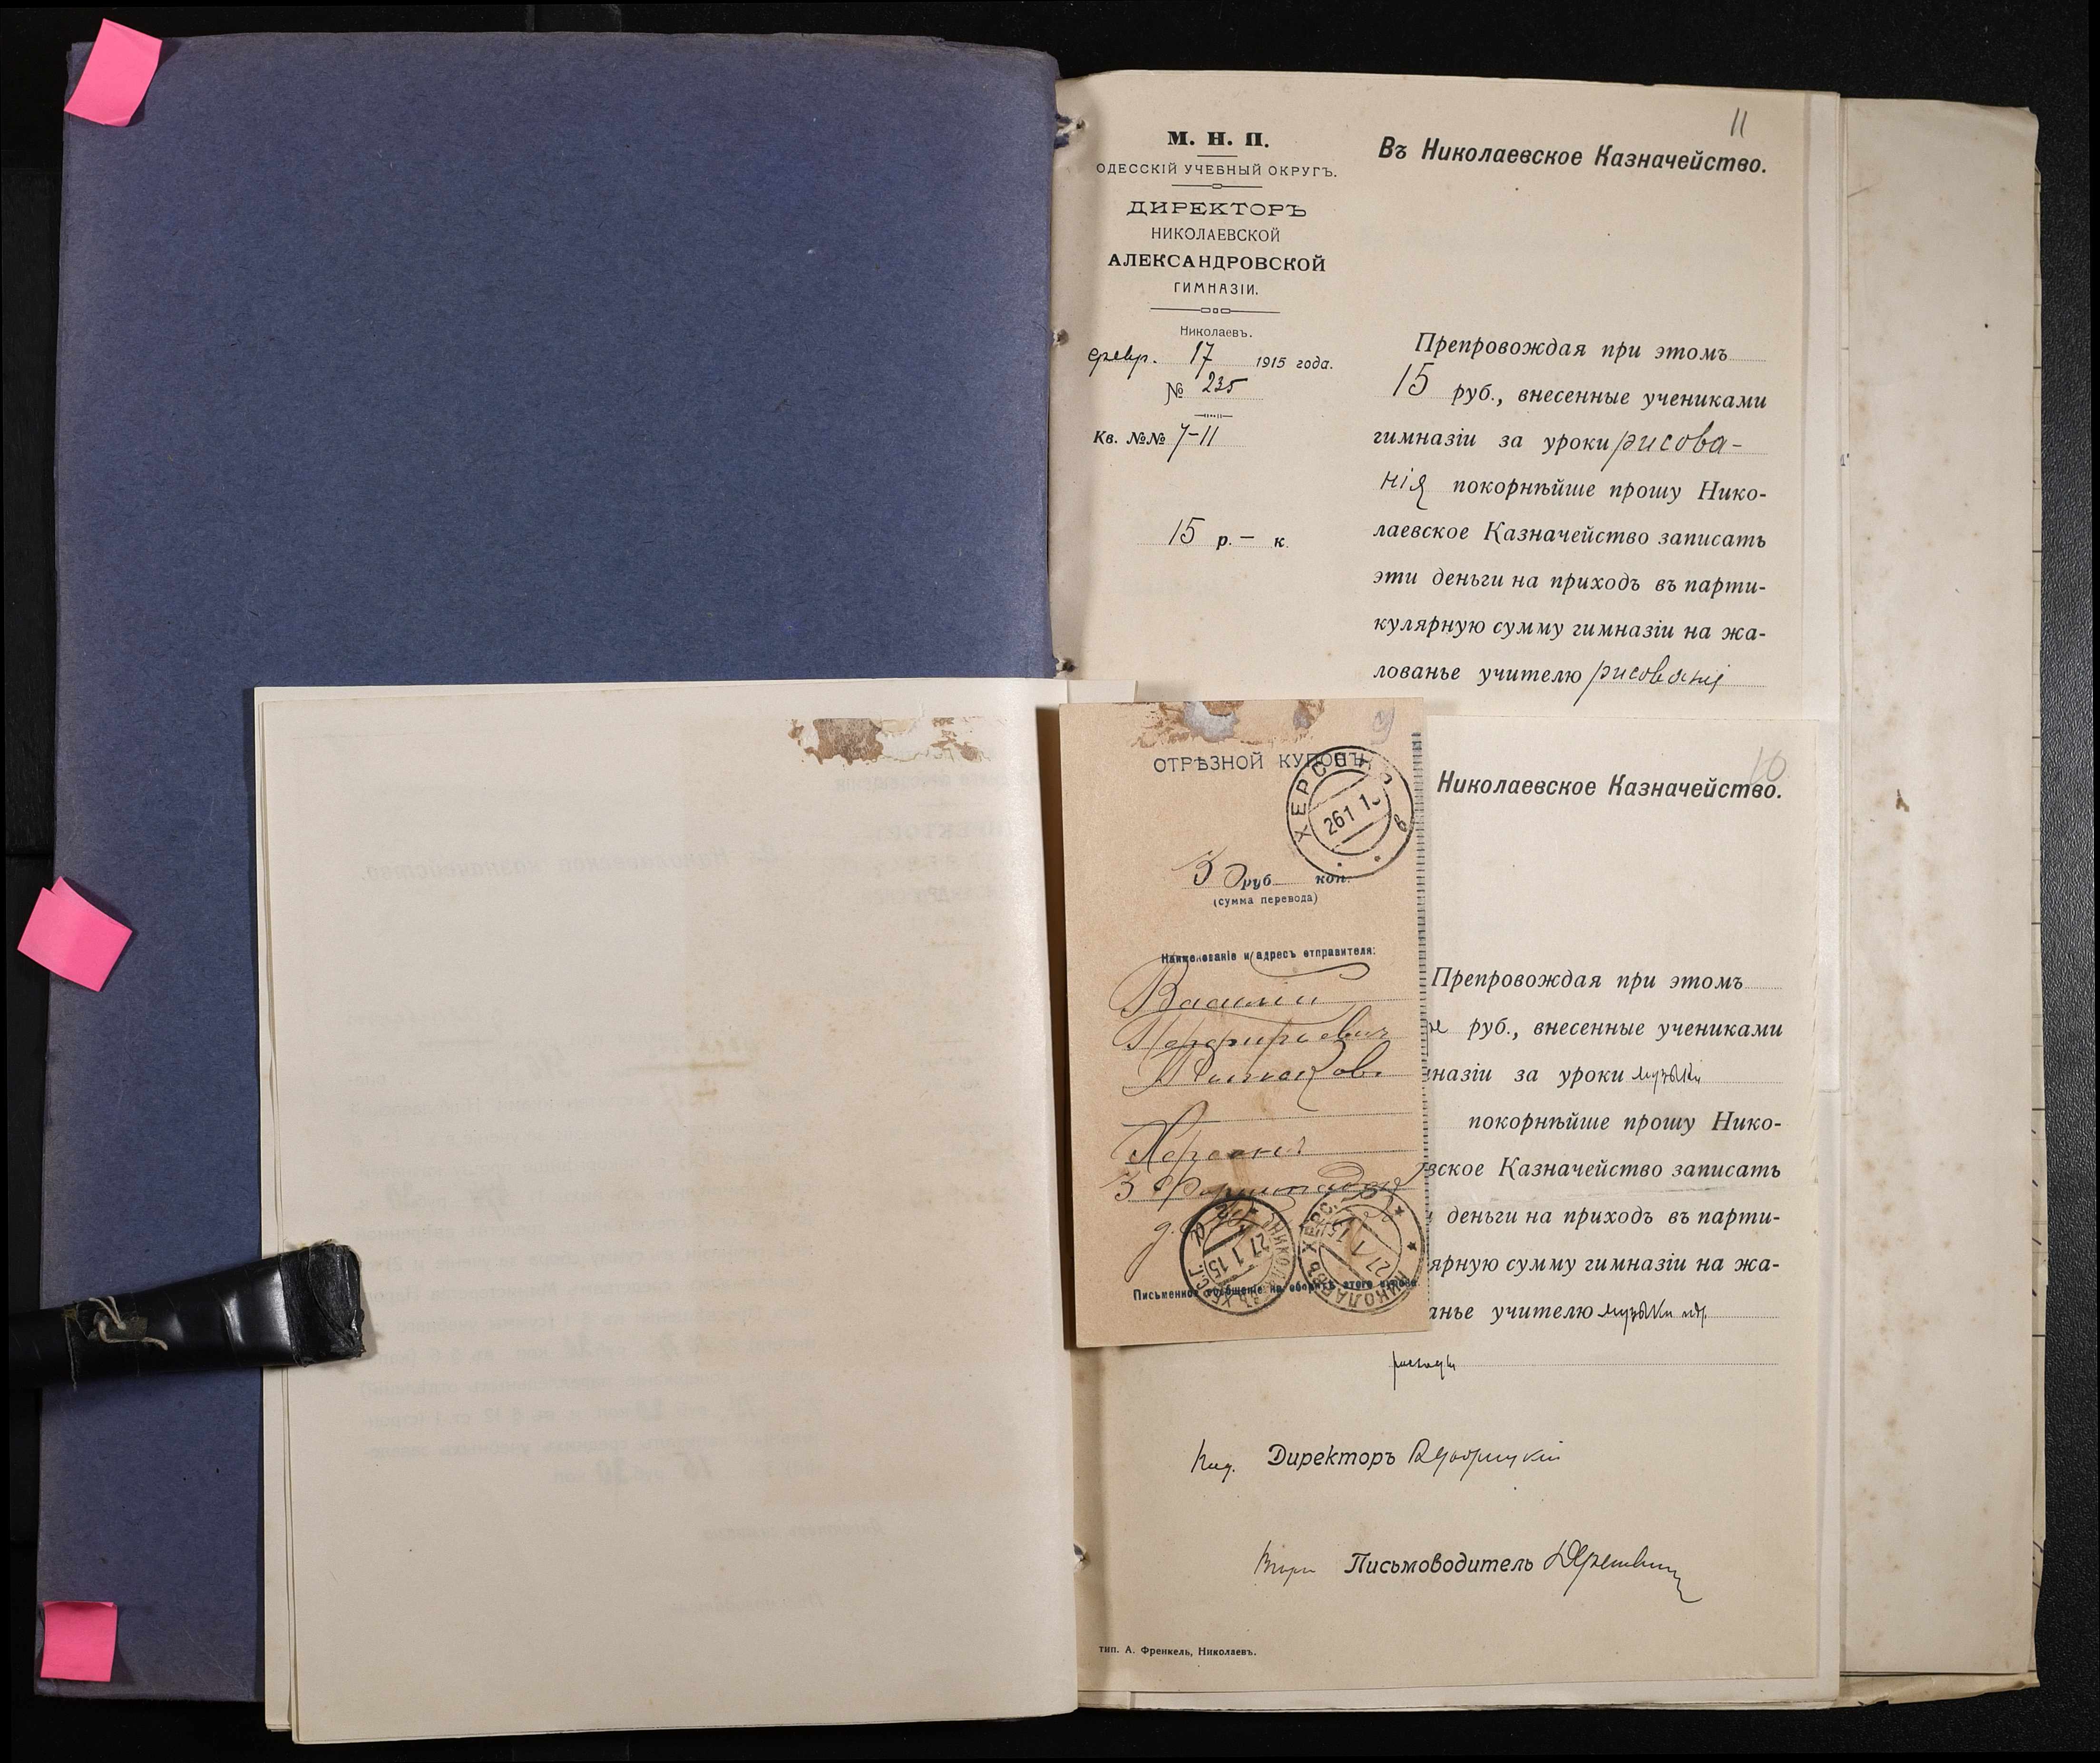 11
М. Н. П.
ОДЕССКІЙ УЧЕБНЫЙ ОКРУГЪ.
ДИРЕКТОРЪ
НИКОЛАЕВСКОЙ
АЛЕКСАНДРОВСКОЙ
ГИМНАЗІИ.
Николаевъ.
февр. 17 1915 года.
№ 235
Кв. №№ 7-11
15 р. — к.
Въ Николаевское Казначейство.
Препровождая при этомъ
15 руб., внесенные учениками
гимназіи за уроки рисова-
нія покорнѣйше прошу Нико-
лаевское Казначейство записать
эти деньги на приходъ въ парти-
кулярную сумму гимназіи на жа-
лованье учителю рисованія
9
ОТРѢЗНОЙ КУПОНЪ
ХЕРСОНЪ
26 1 1
в
3 руб. коп.
(сумма перевода)
Наименованіе и адресъ отправителя:
Василій
Порфирьевич
Херсонъ
3 Форштадтъ
д.
НИКОЛАЕВЪ ХЕРС.
27 1 15
НИКОЛАЕВЪ ХЕРС.
27 1 15
Письменное сообщеніе на оборотѣ этого купона
10
Николаевское Казначейство.
Препровождая при этомъ
руб., внесенные учениками
назіи за уроки музыки
покорнѣйше прошу Нико-
вское Казначейство записать
деньги на приходъ въ парти-
ярную сумму гимназіи на жа-
анье учителю музыки и др.
расходы
Директоръ
Письмоводитель
тип. А. Френкель, Николаевъ.